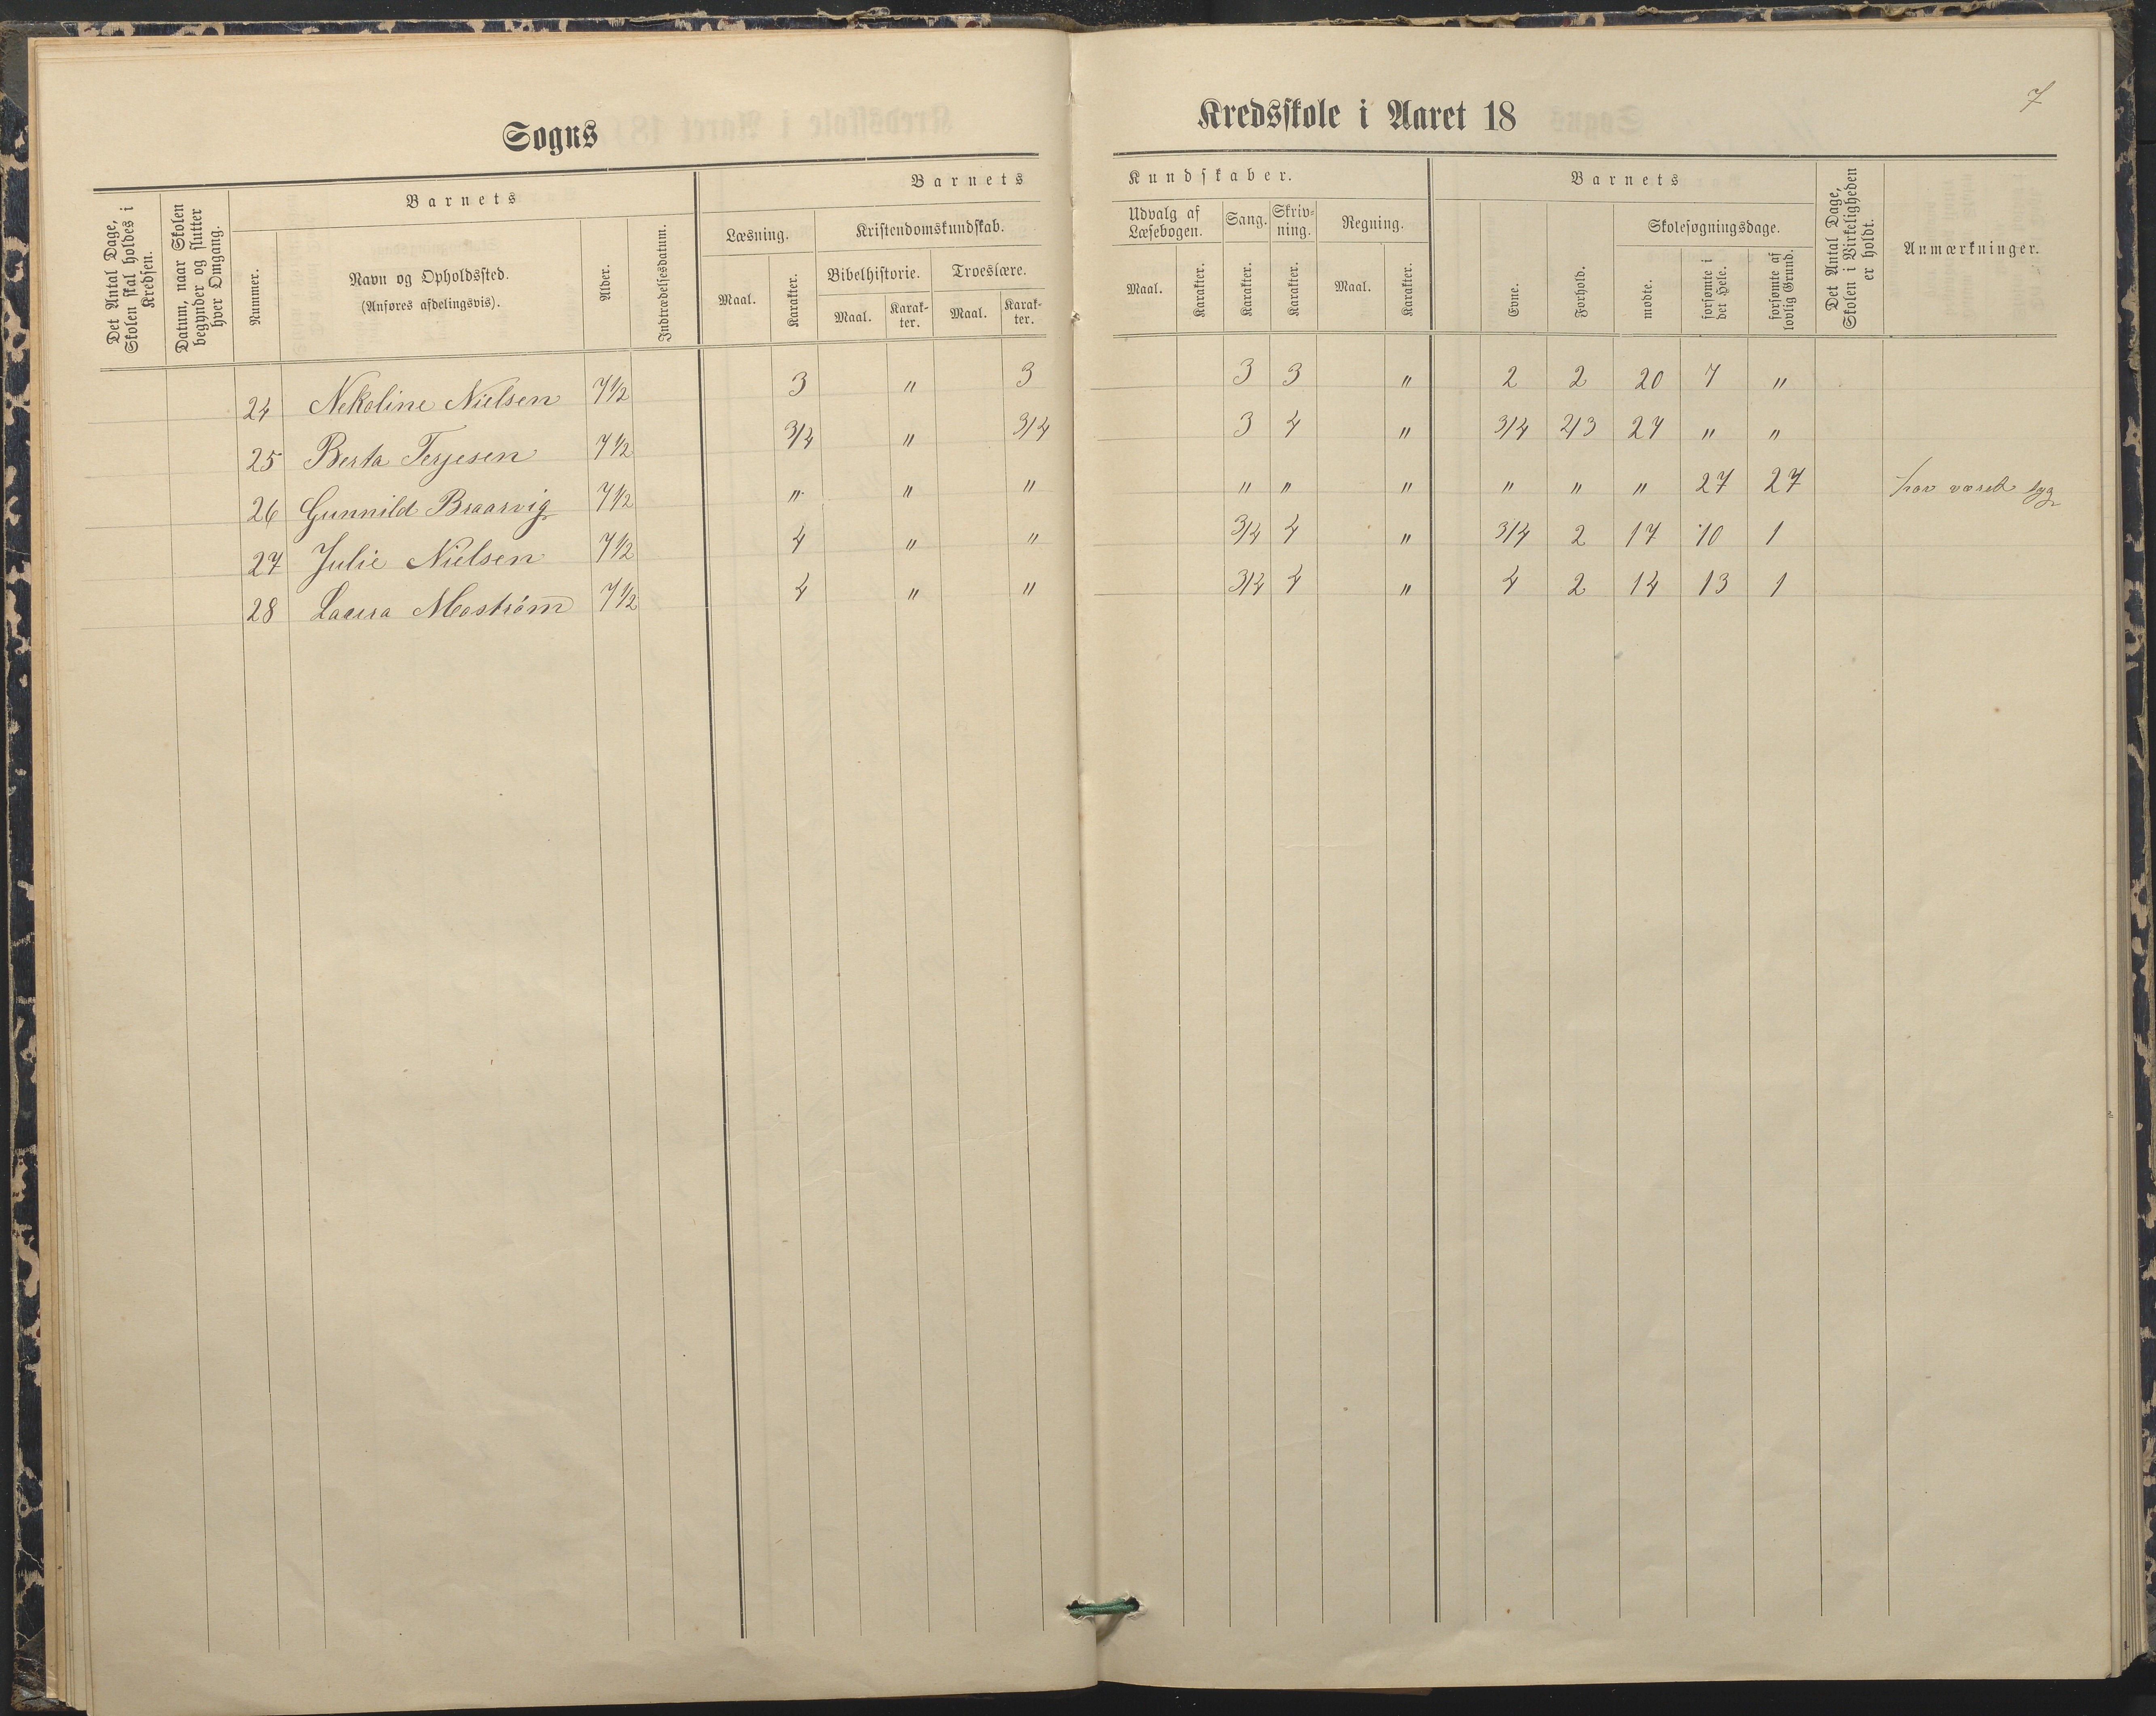 7
Sogns
Kredsskole i Aaret 18
Det Antal Dage, Skolen skal holdes i Kredsen.
Datum, naar Skolen begynder og slutter hver Omgang.
Barnets
Nummer.
Navn og Opholdssted.
(Anføres afdelingsvis).
Alder.
Indtrædelsesdatum.
Barnets
Læsning.
Maal.
Karakter.
Kristendomskundskab.
Bibelhistorie.
Maal.
Karak-
ter.
Troeslære.
Maal.
Karak-
ter.
Kundskaber.
Udvalg af
Læsebogen.
Maal.
Karakter.
Sang.
Karakter.
Skriv-
ning.
Karakter.
Regning.
Maal.
Karakter.
Barnets
Evne.
Forhold.
Skolesøgningsdage.
mødte.
forsømte i det Hele.
forsømte af lovlig Grund.
Det Antal Dage, Skolen i Virkeligheden er holdt.
Anmærkninger.
24 Nekoline Nielsen 7 1/2 3 " 3 3 3 " 2 2 20 7 "
25 Berta Terjesen 7 1/2 3/4 " 3/4 3 4 " 3/4 2/3 27 " "
26 Gunnild Braarvig 7 1/2 " " " " " " " " " 27 27 har været syg
27 Julie Nielsen 7 1/2 4 " " 3/4 4 " 3/4 2 17 10 1
28 Laura Mostrøm 7 1/2 4 " " 3/4 4 " 4 2 14 13 1